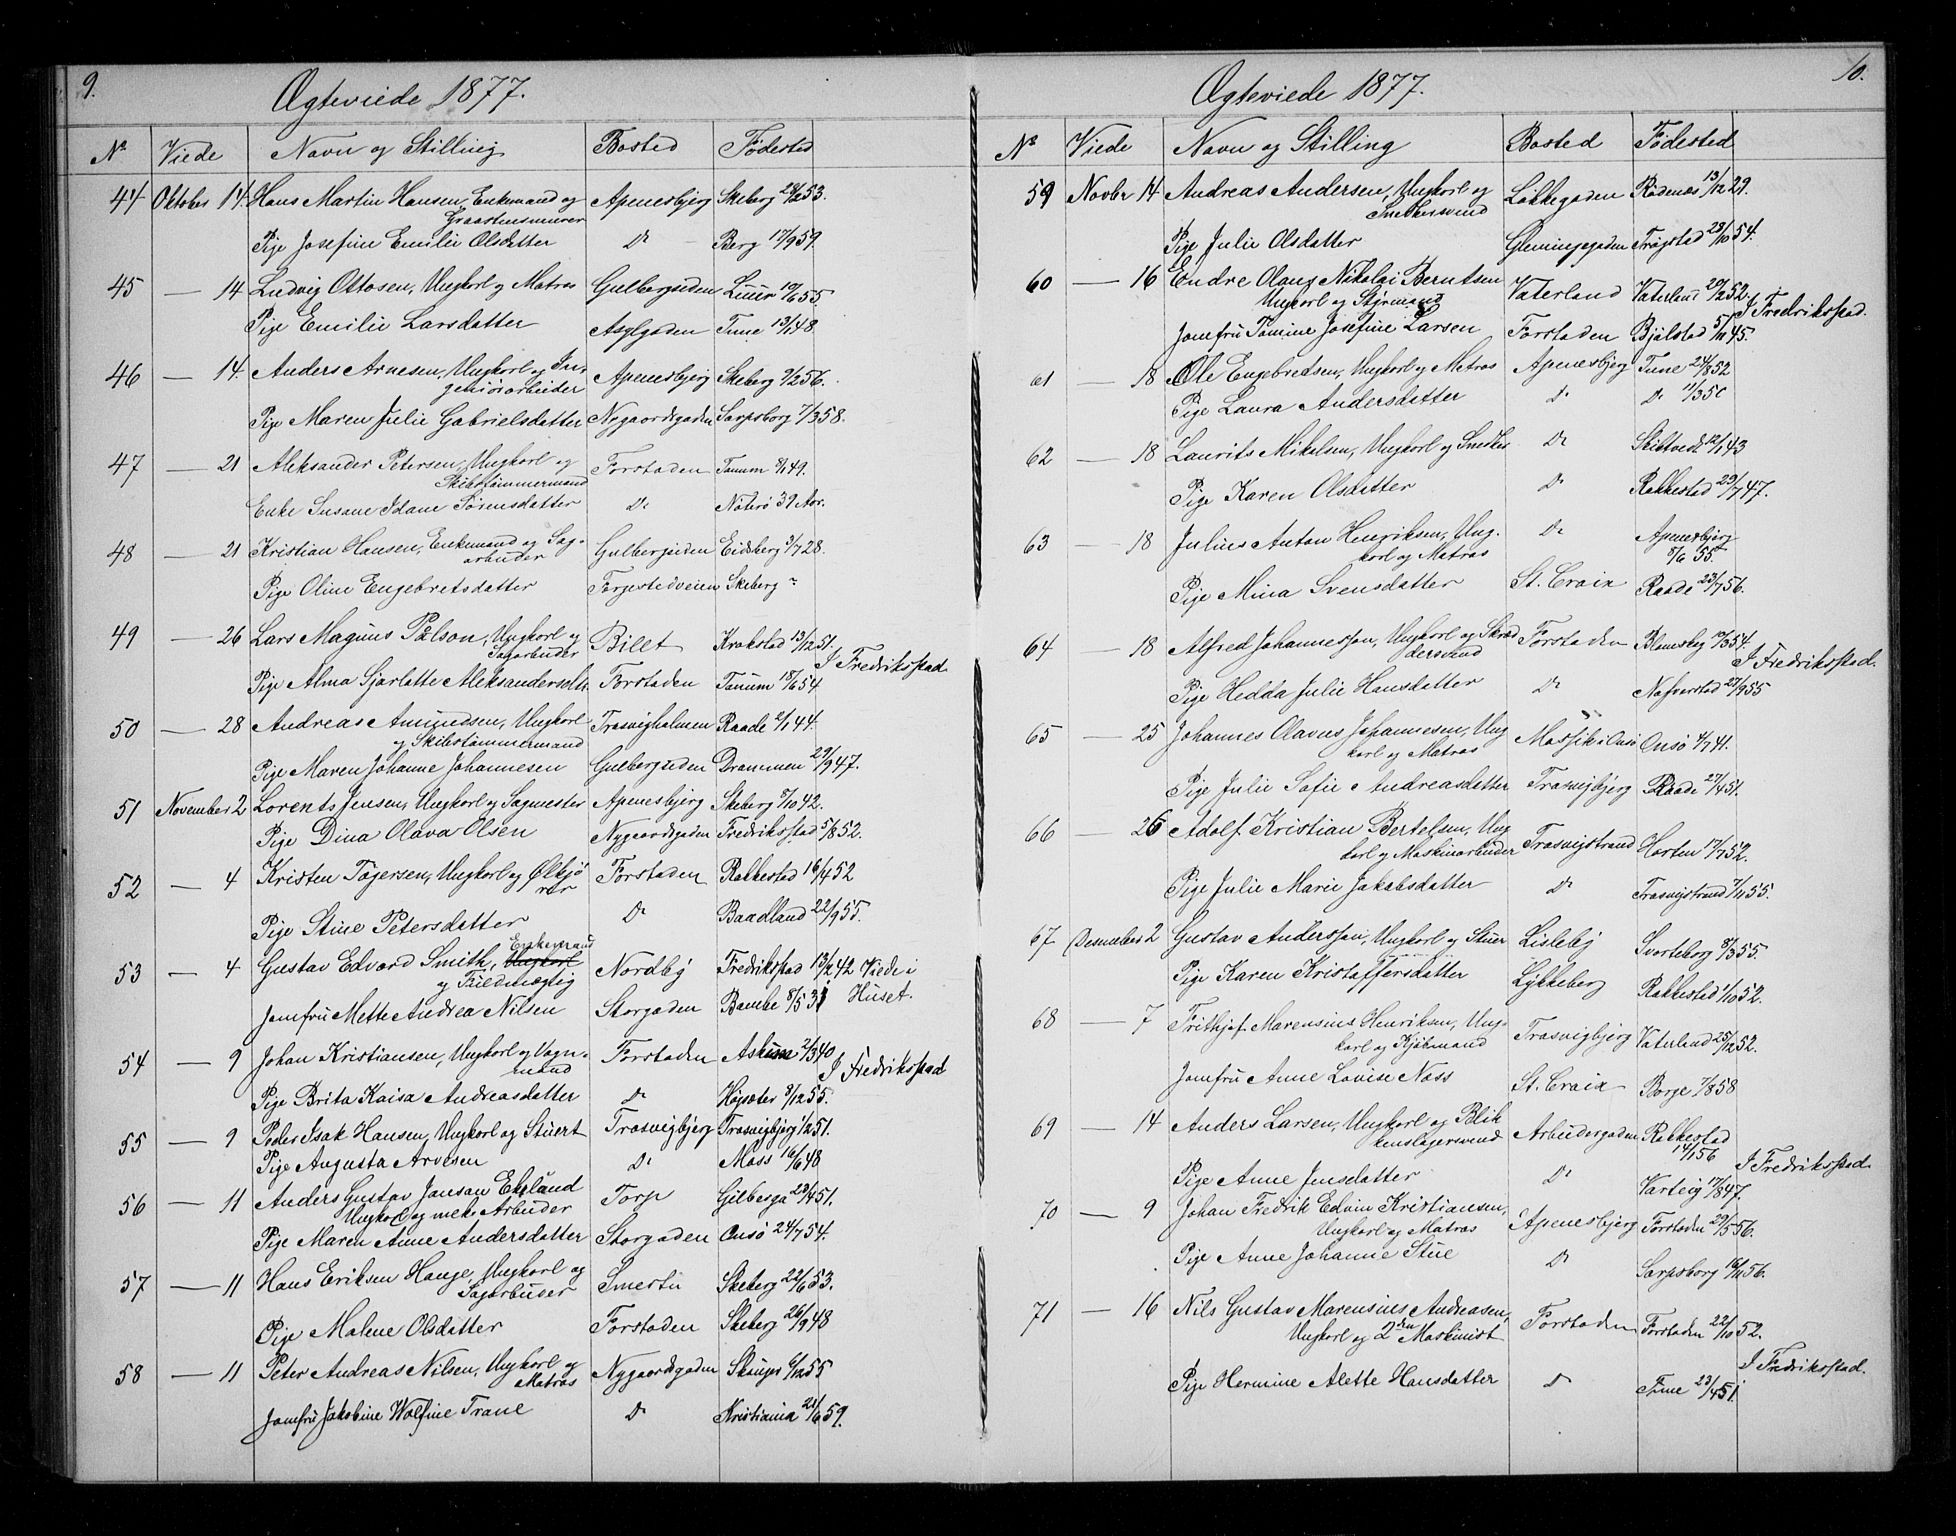 9.
Ægteviede 1877.
No Viede Navn og Stilling Bosted Fødested
44 Oktober 14. Hans Martin Hansen, Enkemand og Apenesbjerg Skeberg 53.
Graastensmurer
Pige Josefine Emilie Olsdatter Do Berg 17/9 59.
45 — 14 Ludvig Ottosen, Ungkarl og Matros Gulbergsiden 19/6 55
Pige Emilie Larsdatter Asylgaden Tune 13/1 48
46 — 14. Anders Arnesen, Ungkarl og In-
geniørarbeider Apenesbjerg Skeberg 9/2 56.
Pige Maren Julie Gabrielsdatter Nygaardsgaden Sarpsborg 7/3 58.
47 — 21 Aleksander Petersen, Ungkarl og Forstaden Tanum 8/1 49.
Skibstømmermand
Enke Susane Idane Sørensdatter Do Nøterø 39 Aar.
48 — 21 Kristian Hansen, Enkemand og Sag- Gulbergsiden Eidsberg 3/7 28.
arbeider
Pige Oline Engebretsdatter Torpestedveien Skeberg
49 — 26 Lars Magnus Pålson, Ungkarl og Bilet Krokstad 13/12 51.
Sagarbeider I Fredriksstad
Pige Alma Sjarlotte Aleksandersdtr. Forstaden Tanum 18/6 54.
50 — 28 Andreas Amundsen, Ungkarl Trosvigholmen Raade 2/1 44.
og Skibstømmermand
Pige Maren Johanne Johannesen Gulbergsiden Drammen 29/9 47.
51 November 2 Lorents Jensen, Ungkarl og Sagmester Apenesbjerg Skeberg 8/10 42.
Pige Dina Olava Olsen Nygaardsgaden Fredriksstad 5/8 52.
52 — 4 Kristen Tøgersen, Ungkarl og Ølkjø- Forstaden Rakkestad 16/4 52
rer
Pige Stine Petersdatter Do Baadland 22/9 55.
Enkemand
53 — 4 Gustav Edvard Smith, Ungkarl Nordby Fredriksstad 13/2 42 Viede i
og Fuldmægtig Huset.
Jomfru Mette Andrea Nilsen Storgaden Bamble 8/5 31
54 — 9 Johan Kristiansen, Ungkarl og Vogn- Forstaden Askim 2/3 40
mand I Fredriksstad
Pige Brita Kaisa Andreasdatter Do Høgsæter 8/12 55.
55 — 9 Peder Isak Hansen, Ungkarl og Stuert Trosvigbjerg Trosvigbjerg 1/2 51.
Pige Augusta Arvesen Do Moss 16/6 48
56 — 11 Anders Gustav Jansan Eklund Torp Gilbesga 23/4 51.
Ungkarl og mek. Arbeider
Pige Maren Anne Andersdatter Storgaden Onsø 24/7 54.
57 — 11 Hans Eriksen Hauge, Ungkarl og Smertu Skeberg 22/6 53.
Sagarbeider
Pige Malene Olsdatter Forstaden Skeberg 26/9 48
58 — 11 Peter Andreas Nilsen, Ungkarl og Nygaardsgaden Skauger 6/12 55
Matros
Jomfru Jakobine Wolfine Trane Do Kristiania 21/6 59.
10.
Ægteviede 1877.
No Viede Navn og Stilling Bosted Fødested
59 Novbr 14 Andreas Andersen, Ungkarl og Løkkegaden Rødenæs 13/12 29.
Snedkersvend
Pige Julie Olsdatter Glemmegaden Trøgstad 28/10 54.
60 — 16 Endre Olaus Nikolai Berntsen Vaterland Vaterland 20/2 52.
Ungkarl og Styrmand I Fredriksstad.
Jomfru Tomine Josefine Larsen Forstaden Bjølstad 5/11 45.
61 — 18 Ole Engebretsen, Ungkarl og Matros Apenesbjerg Tune 24/8 52
Pige Laura Andersdatter Do Do 11/3 50
62 — 18 Laurits Mikelsen, Ungkarl og Snedker Do Skibtvedt 12/1 43
Pige Karen Olsdatter Do Rakkestad 29/7 47.
63 — 18 Julius Anton Henriksen, Ung- Do Apenesbjerg
karl og Matros 8/6 55.
Pige Mina Svensdatter St. Croix Raade 23/7 56.
64 — 18 Alfred Johannesson, Ungkarl og Skræd Forstaden Blomskog 19/3 54.
dersvend I Fredriksstad.
Pige Hedda Julie Hansdatter Do Nafverstad 27/9 55
65 — 25 Johannes Olavus Johannesen, Ung Onsø 4/7 41.
karl og Matros
Pige Julie Sofie Andreasdatter Trosvigbjerg Raade 27/4 51.
66 — 26 Adolf Kristian Bertelsen, Ung Trosvigstrand Horten 17/7 52.
karl og Maskinarbeider
Pige Julie Marie Jakobsdatter Do Trosvigstrand 7/11 55.
67 Desember 2 Gustav Andersson, Ungkarl og Stuer Lisleby Svarteborg 8/3 55.
Pige Karen Kristoffersdatter Lykkeberg Rakkestad 1/10 52.
68 — 7 Frithjof Marensius Henriksen, Ung- Trosvigbjerg Vaterland 25/12 52.
karl og Kjøbmand
Jomfru Anne Lovise Næss St. Croix Borge 7/8 58
69 — 14 Anders Larsen, Ungkarl og Blik Arbeidergaden Rakkestad
kenslagersvend 14/1 56
I Fredriksstad.
Pige Anne Jensdatter Do Varteig 17/8 47.
70 — 9 Johan Fredrik Edvin Kristiansen, Apenesbjerg Forstaden 29/5 56.
Ungkarl og Matros
Pige Anne Johanne Stue Do Sarpsborg 16/11 56.
71 — 16 Nils Gustav Marensius Andreasen, Forstaden Forstaden 22/10 52.
Ungkarl og 2den Maskinist
I Fredriksstad.
Pige Hermine Alette Hansdatter Do Tune 23/4 51